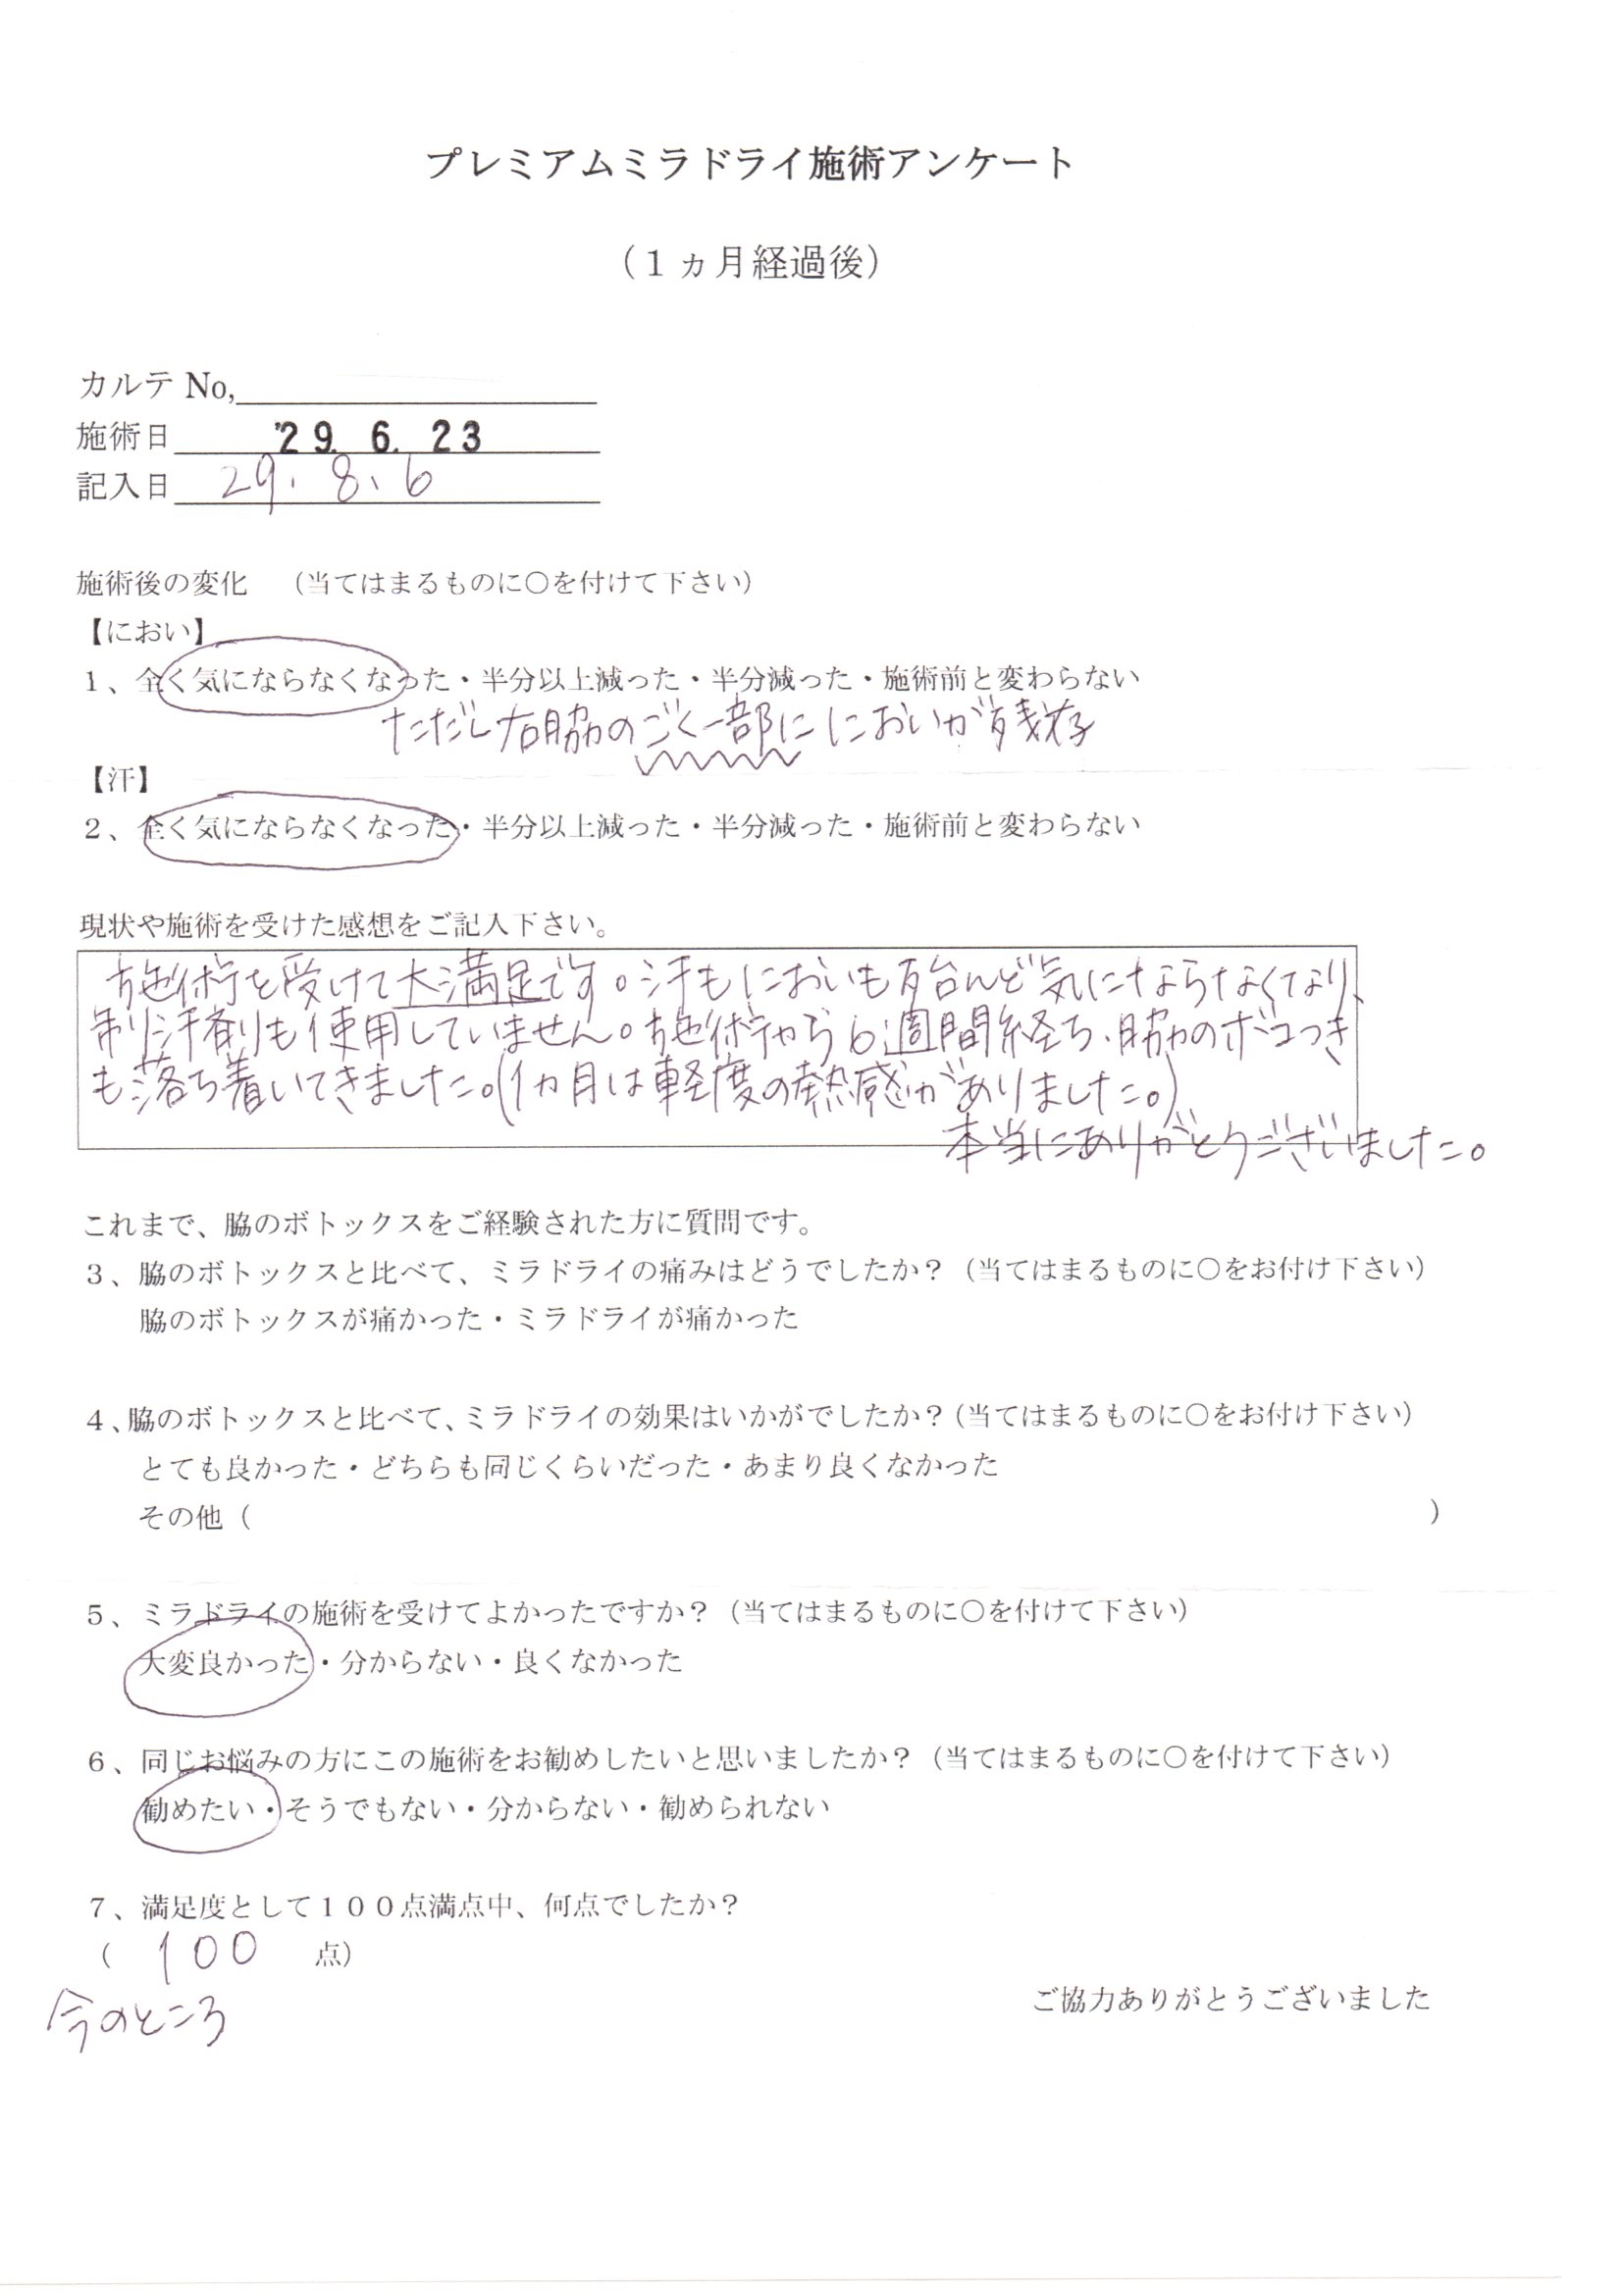 プレミアムミラドライ施術アンケート
（１ヵ月経過後）
カルテ No,
施術日 '29. 6. 23
記入日 29. 8. 6
施術後の変化　（当てはまるものに○を付けて下さい）
【におい】
１、全く気にならなくなった・半分以上減った・半分減った・施術前と変わらない
ただし右脇のごく一部ににおいが残存
【汗】
２、全く気にならなくなった・半分以上減った・半分減った・施術前と変わらない
現状や施術を受けた感想をご記入下さい。
施術を受けて大満足です。汗もにおいも殆んど気にならなくなり、
制汗剤も使用していません。施術から6週間経ち、脇のボコつき
も落ち着いてきました。(1カ月は軽度の熱感がありました。)
本当にありがとうございました。
これまで、脇のボトックスをご経験された方に質問です。
３、脇のボトックスと比べて、ミラドライの痛みはどうでしたか？（当てはまるものに○をお付け下さい）
脇のボトックスが痛かった・ミラドライが痛かった
４、脇のボトックスと比べて、ミラドライの効果はいかがでしたか？（当てはまるものに○をお付け下さい）
とても良かった・どちらも同じくらいだった・あまり良くなかった
その他（　　　）
５、ミラドライの施術を受けてよかったですか？（当てはまるものに○を付けて下さい）
大変良かった・分からない・良くなかった
６、同じお悩みの方にこの施術をお勧めしたいと思いましたか？（当てはまるものに○を付けて下さい）
勧めたい・そうでもない・分からない・勧められない
７、満足度として１００点満点中、何点でしたか？
（ 100 点）
今のところ
ご協力ありがとうございました